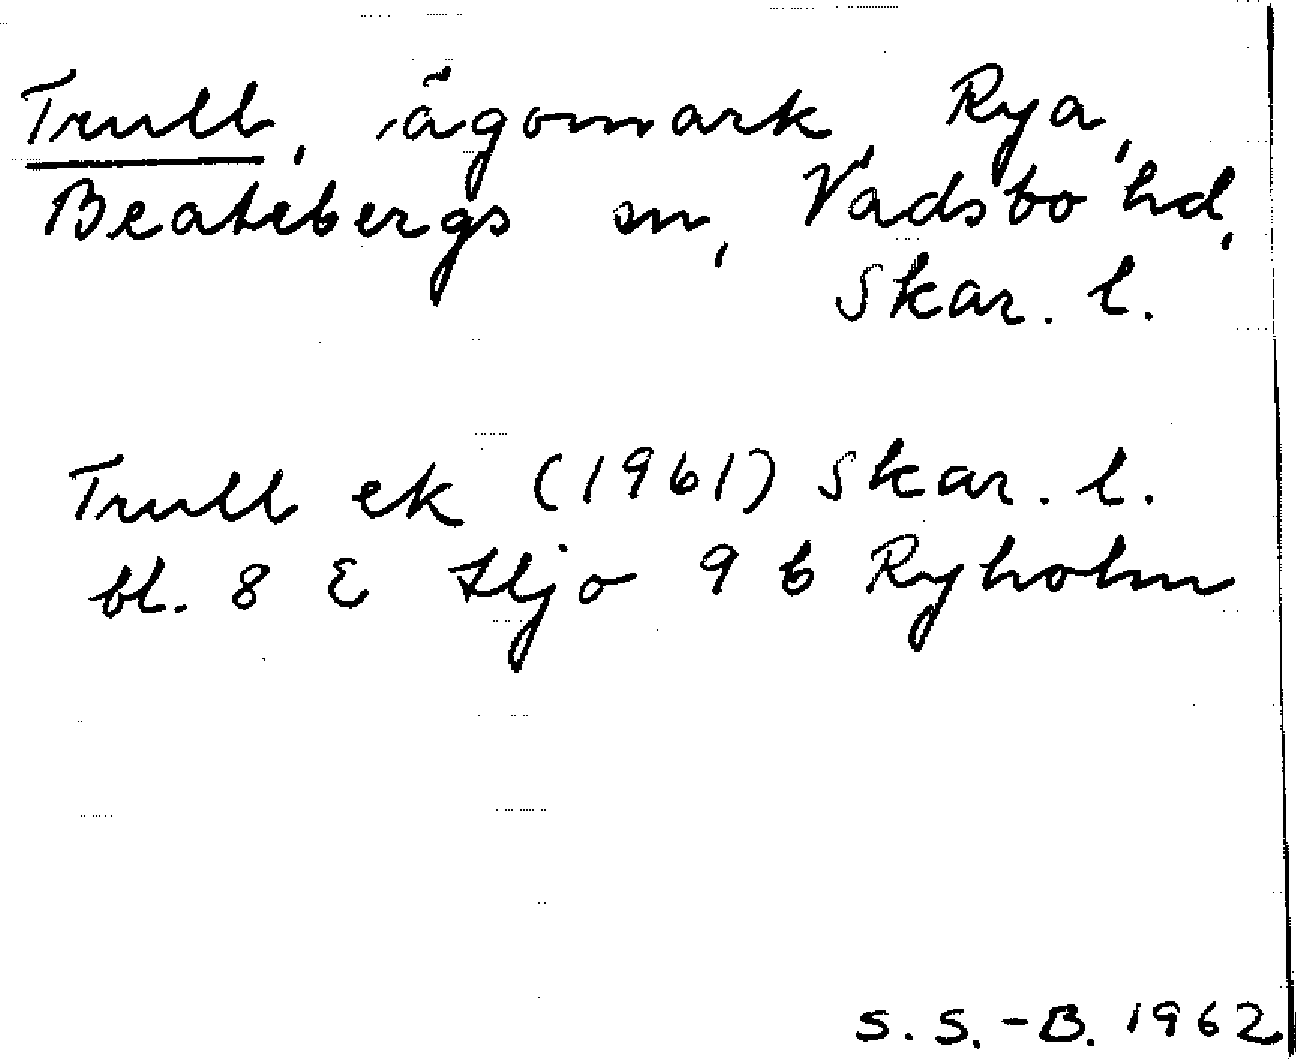 Trull, ägomark, Rya,
Beatebergs sn, Vadsbo hd,
Skar. l.
Trull ek (1961) Skar. l.
bl. 8 E Hjo 9 b Ryholm
S. S.-B. 1962